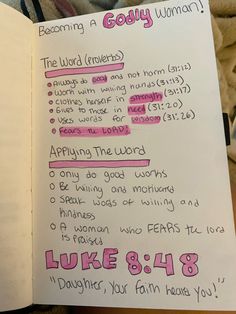 Becoming A Godly Woman!
The Word (Proverbs)
Always do good and not harm (31:12)
Work with willing hands (31:13)
Clothes herself in strength (31:17)
Gives to those in need (31:20)
Uses words for wisdom (31:26)
Fears the LORD!
Applying The Word
Only do good works
Be willing and motivated
Speak words of willing and
kindness
A woman who FEARS the lord
is praised
LUKE 8:48
"Daughter, your faith heals you!"